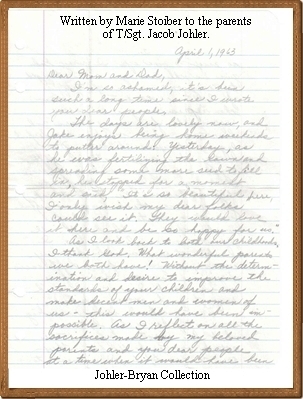 Written by Marie Stoiber to the parents
of T/Sgt. Jacob Johler.
April 1, 1963
Dear Mom and Dad,
I'm so ashamed, it's been
such a long time since I wrote
you dear people.
The days are lovely now, and
Jake enjoys being home weekends
to putter around. Yesterday, as
he was fertilizing the lawn and
spreading some more seed to fill
in, he stopped for a moment
and said, "it is so beautiful here,
I only wish my dear folks
could see it. They would love
it here and be so happy for us."
As I look back to both our childhoods,
I thank God. What wonderful parents
we both have! Without the determ-
ination and desire to improve the
standards of your children and
make decent men and women of
us - this would have been im-
possible. As I reflect on all the
sacrifices made by my beloved
parents and you dear people
at a time when it would have been
Johler-Bryan Collection